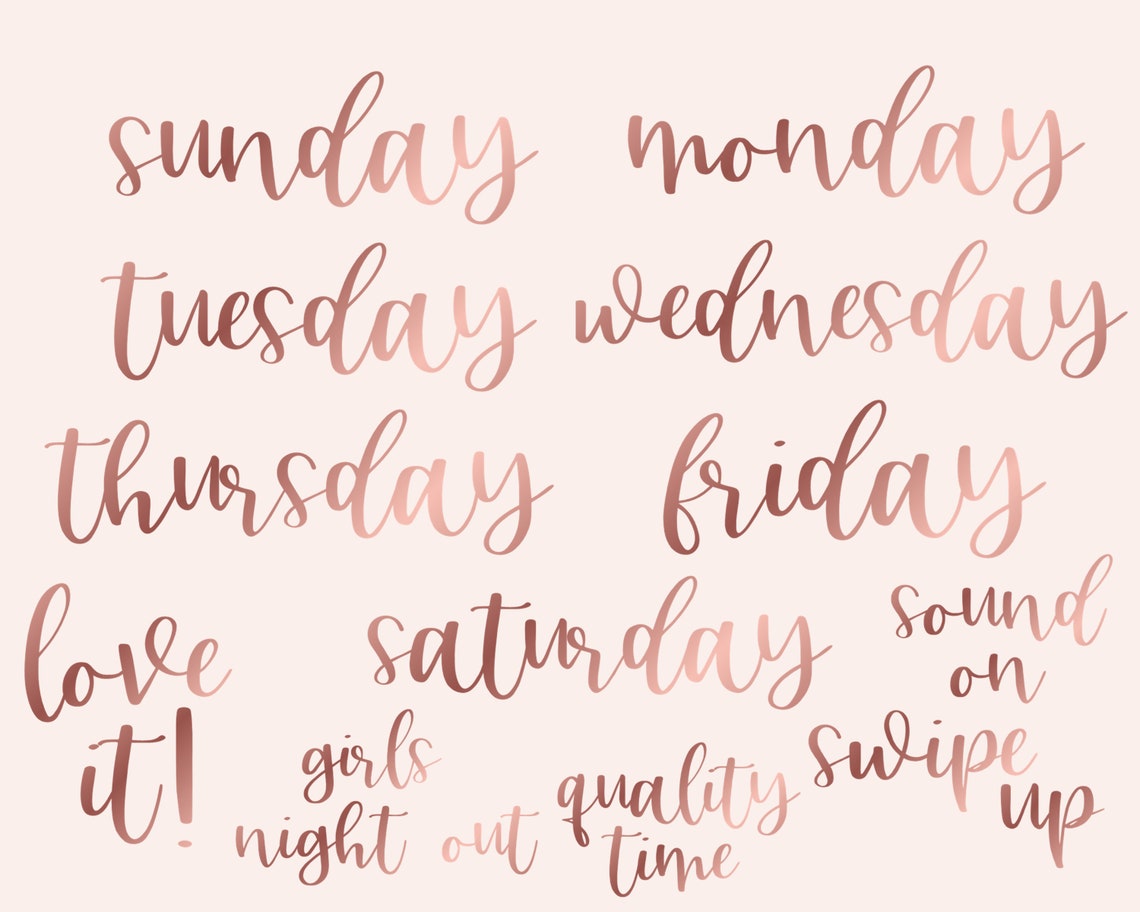 sunday
monday
tuesday
wednesday
thursday
friday
love
it!
saturday
sound
on
girls
night out
quality
time
swipe
up